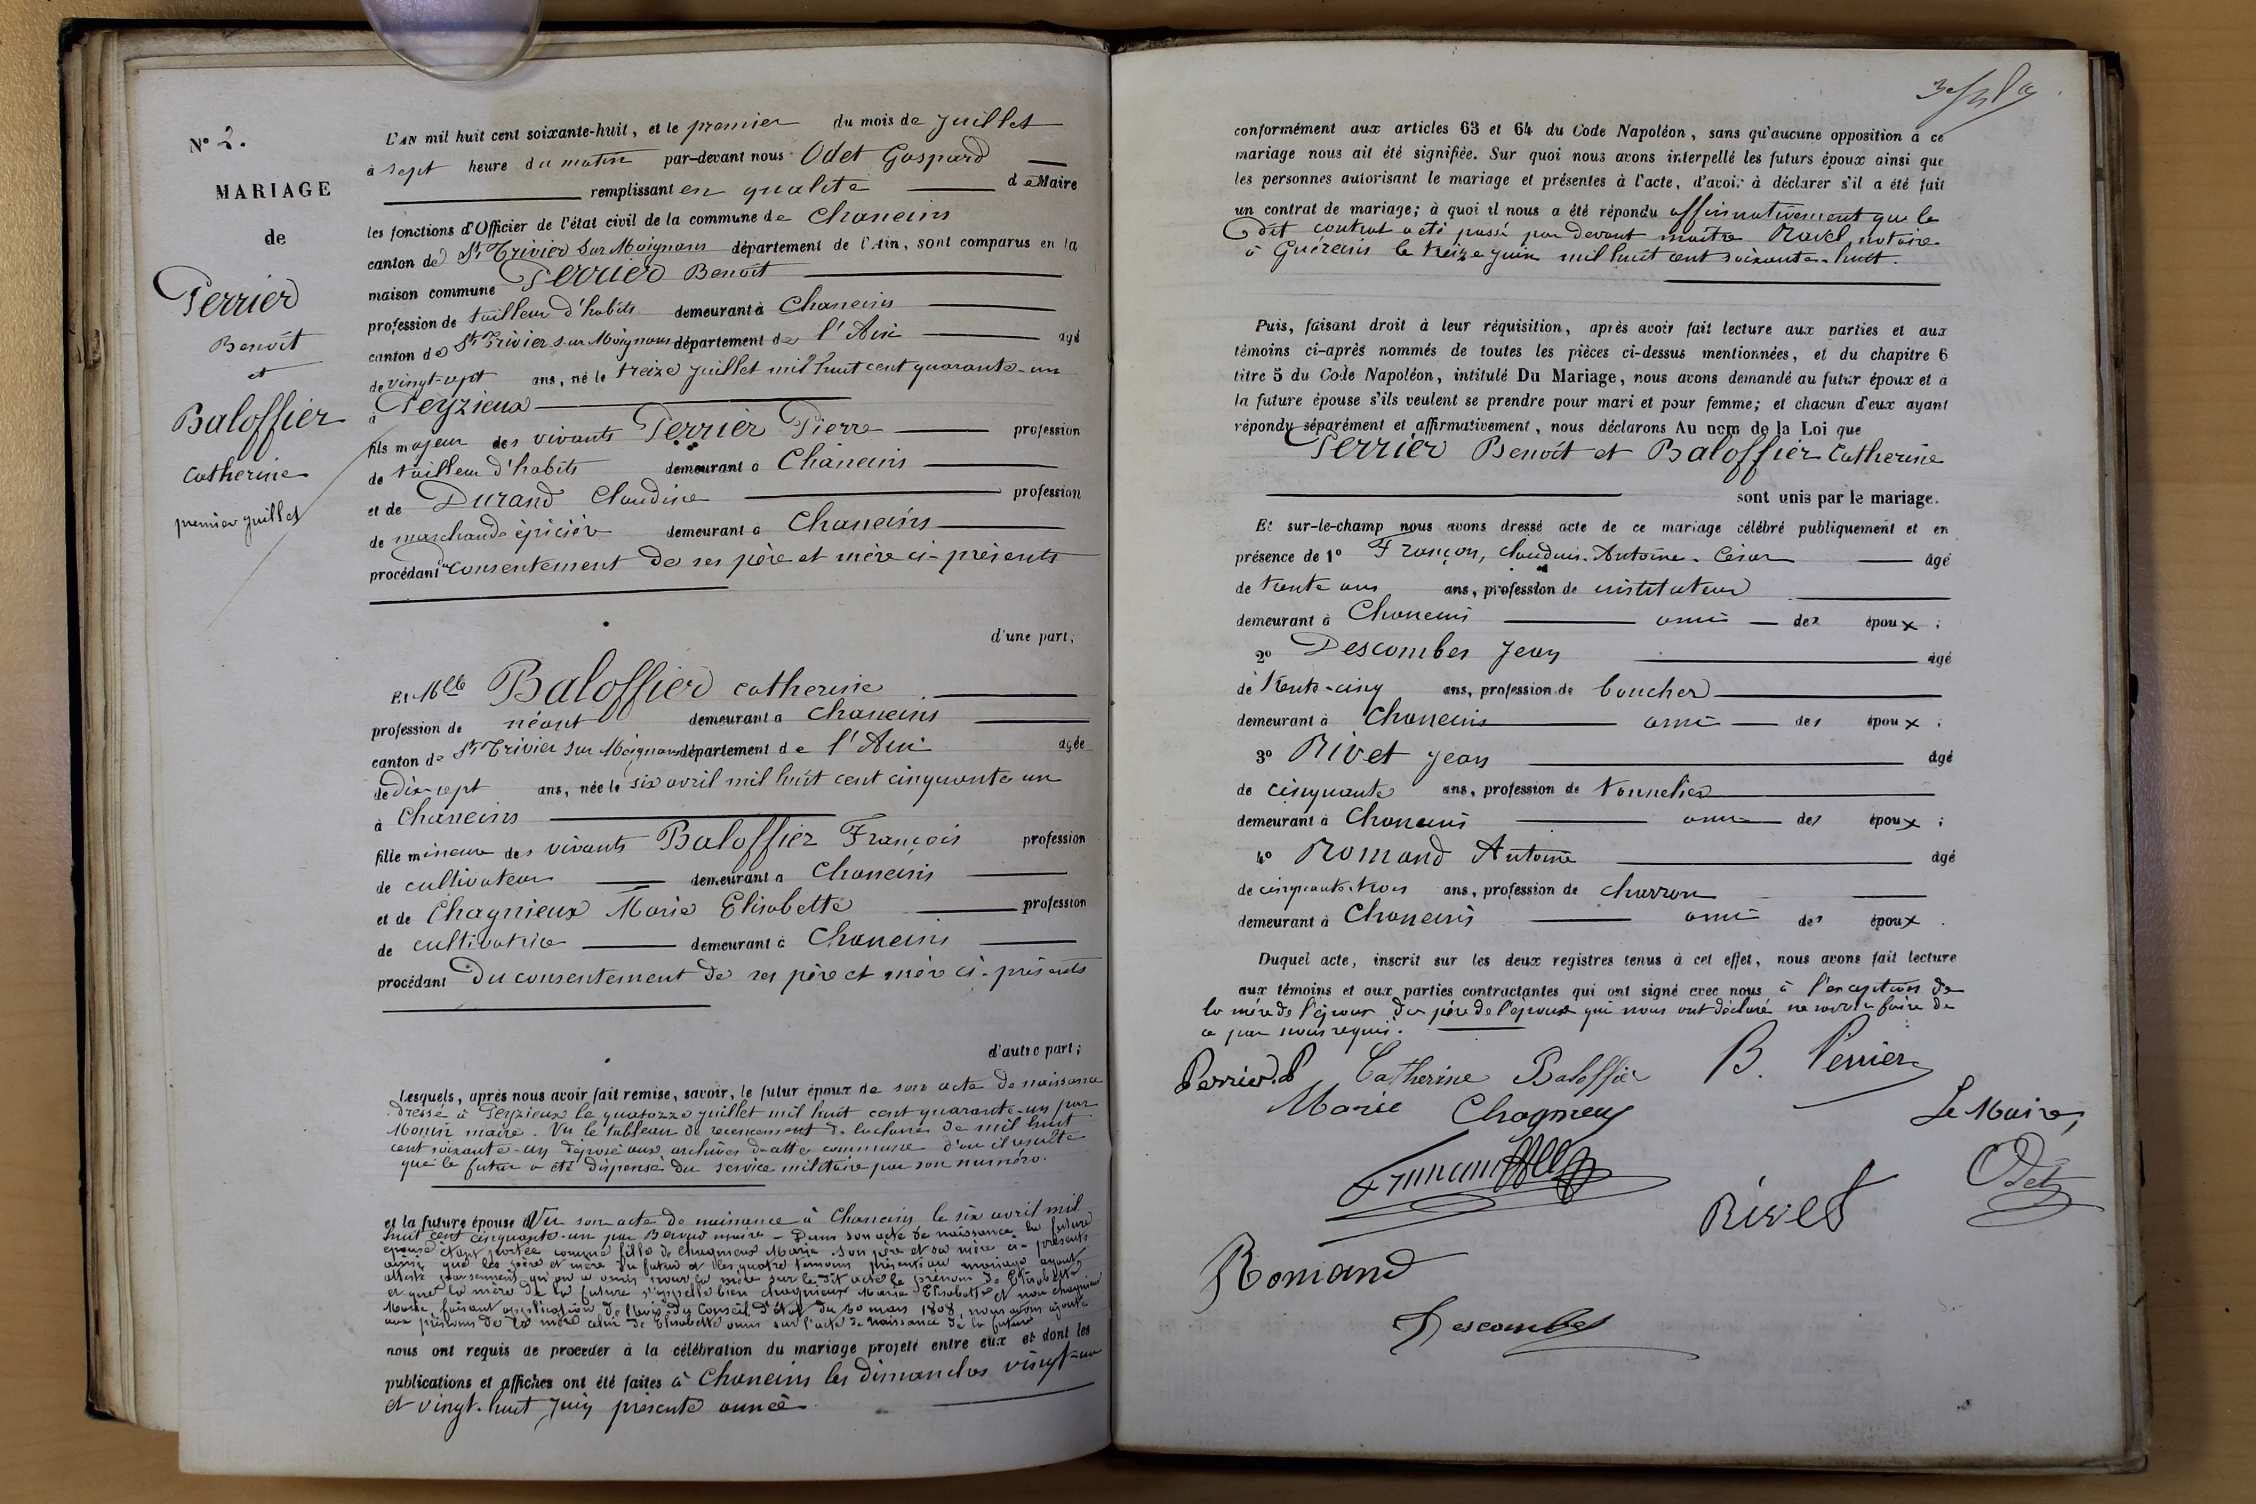 N° 2.
MARIAGE
de
Perrier
Benoît
et
Baloffier
Catherine
premier juillet
L'AN mil huit cent soixante-huit, et le premier du mois de juillet
à sept heure du matin par-devant nous Odet Gaspard
remplissant en qualité de Maire
les fonctions d'Officier de l'état civil de la commune de Chaneins
canton de St Trivier sur Moignans département de l'Ain, sont comparus en la
maison commune Perrier Benoît
profession de tailleur d'habits demeurant à Chaneins
canton de St Trivier sur Moignans département de l'Ain agé
de vingt-sept ans, né le treize juillet mil huit cent quarante-un
à Peyzieux
fils majeur des vivants Perrier Pierre profession
de tailleur d'habits demeurant à Chaneins
et de Durand Claudine profession
de marchande épicière demeurant à Chaneins
procédant consentement de ses père et mère ci-présents
d'une part;
Et Mlle Baloffier Catherine
profession de néant demeurant à Chaneins
canton de St Trivier sur Moignans département de l'Ain agée
de dix-sept ans, née le six avril mil huit cent cinquante un
à Chaneins
fille mineure des vivants Baloffier François profession
de cultivateur demeurant à Chaneins
et de Chagnieux Marie Elisabette profession
de cultivatrice demeurant à Chaneins
procédant du consentement de ses père et mère ci-présents
d'autre part;
Lesquels, après nous avoir fait remise, savoir, le futur époux de son acte de naissance
dressé à Peyzieux le quatorze juillet mil huit cent quarante-un par
Monin maire. Vu le tableau de recensement de la classe de mil huit
cent soixante-un déposé aux archives de cette commune d'où il résulte
que le futur a été dispensé du service militaire par son numéro.
et la future épouse d Vu son acte de naissance à Chaneins le six avril mil
huit cent cinquante-un par maire - Dans son acte de naissance la future
épouse étant portée comme fille de Chagnieux Marie. Son père et sa mère ci-présents
ainsi que les père et mère du futur et les quatre témoins présents au mariage ayant
attesté par serment qu'on a omis pour la mère sur le dit acte le prénom de Elisabette
et que la mère de la future s'appelle bien Chagnieux Marie Elisabette et non Chagnieux
Marie, faisant application de l'avis du Conseil d'Etat du 30 mars 1808, nous avons ajouté
aux prénoms de la mère celui de Elisabette omis sur l'acte de naissance de la future
nous ont requis de procéder à la célébration du mariage projeté entre eux et dont les
publications et affiches ont été faites à Chaneins les dimanches vingt-un
et vingt-huit juin présente année
conformément aux articles 63 et 64 du Code Napoléon, sans qu'aucune opposition à ce
mariage nous ait été signifiée. Sur quoi nous avons interpellé les futurs époux ainsi que
les personnes autorisant le mariage et présentes à l'acte, d'avoir à déclarer s'il a été fait
un contrat de mariage; à quoi il nous a été répondu affirmativement que le
dit contrat a été passé par devant maître Ravel notaire
à Guéreins le treize juin mil huit cent soixante-huit.
Puis, faisant droit à leur réquisition, après avoir fait lecture aux parties et aux
témoins ci-après nommés de toutes les pièces ci-dessus mentionnées, et du chapitre 6
titre 5 du Code Napoléon, intitulé Du Mariage, nous avons demandé au futur époux et à
la future épouse s'ils veulent se prendre pour mari et pour femme; et chacun d'eux ayant
répondu séparément et affirmativement, nous déclarons Au nom de la Loi que
Perrier Benoît et Baloffier Catherine
sont unis par le mariage.
Et sur-le-champ nous avons dressé acte de ce mariage célébré publiquement et en
présence de 1° Françon, Claudius-Antoine-César âgé
de trente ans ans, profession de instituteur
demeurant à Chaneins ami des époux ;
2° Descombes Jean âgé
de trente-cinq ans, profession de boucher
demeurant à Chaneins ami des époux ;
3° Rivet Jean âgé
de cinquante ans, profession de tonnelier
demeurant à Chaneins ami des époux ;
4° Romand Antoine âgé
de cinquante-trois ans, profession de charron
demeurant à Chaneins ami des époux .
Duquel acte, inscrit sur les deux registres tenus à cet effet, nous avons fait lecture
aux témoins et aux parties contractantes qui ont signé avec nous à l'exception de
la mère de l'époux du père de l'épouse qui nous ont déclaré ne savoir faire de
ce par nous requis.
Perrier P Catherine Baloffier B. Perrier
Marie Chagnieux Le Maire,
Odet
Rivet
Romand
Descombes